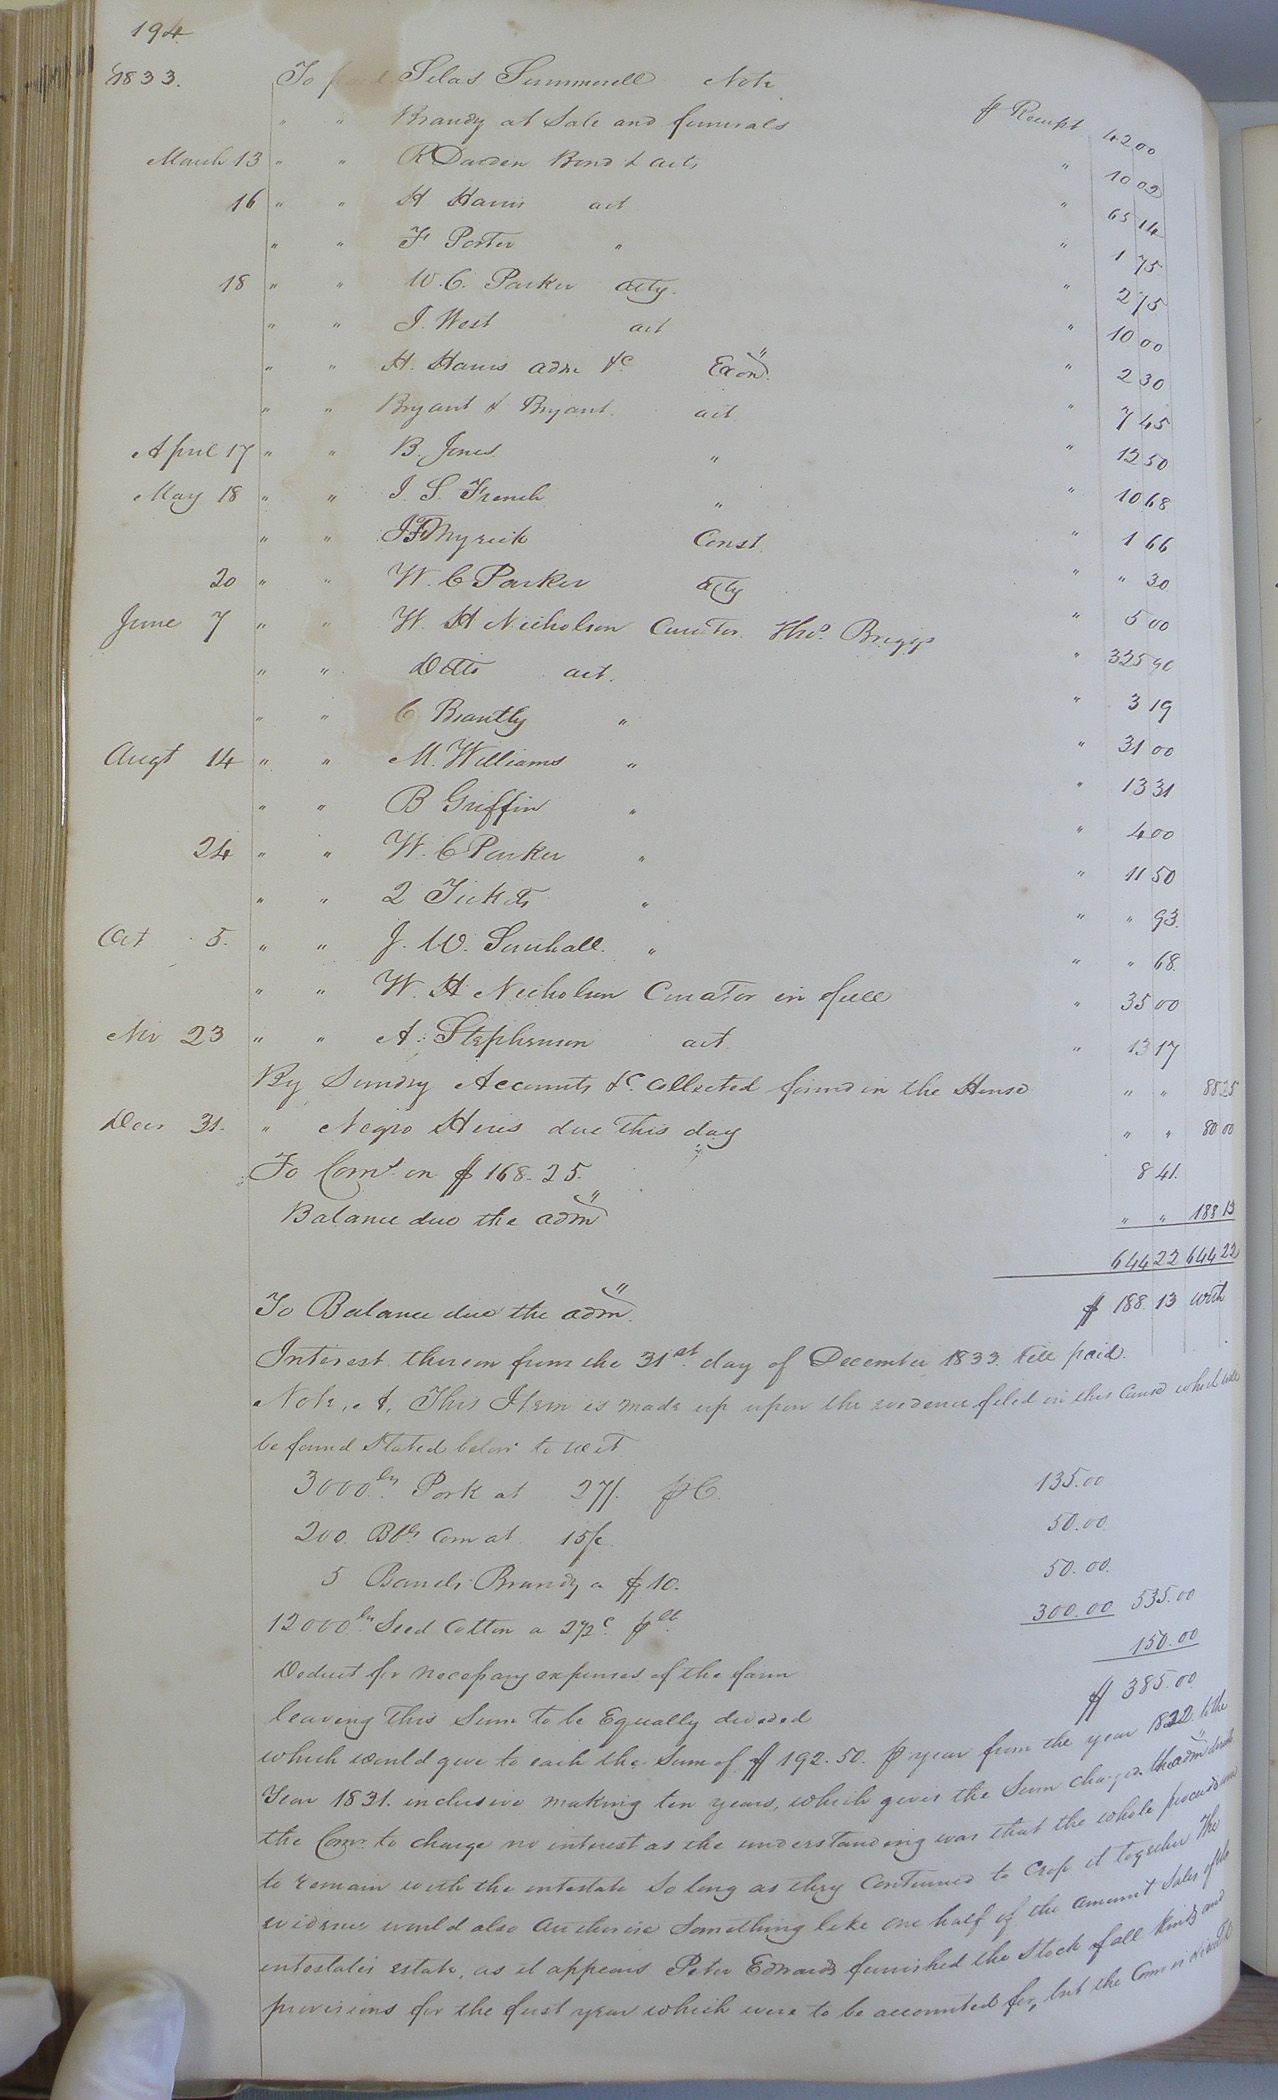 194
1833. To paid Silas Summerell Note pr Receipt 42 00
" " Brandy at Sale and funerals " 10 02
March 13 " " R Darden Bond & act. " 65 14
16 " " H Harris act " 1 75
" " F. Porter " " 2 75
18 " " W. C. Parker atty. " 10 00
" " J. West act " 2 30
" " H. Harris adm &c Exon. " 7 45
" " Bryant & Bryant. act " 12 50
April 17 " " B. Jones " " 10 68
May 18 " " J. S. French " " 1 66
" " J Myrick Const. " " 30
20 " " W. C Parker atty " 5 00
June 7 " " W. H Nicholson Curator Thos. Briggs " 325 90
" " Ditto act. " 3 19
" " C Brantly " " 31 00
Augt 14 " " M. Williams " " 13 31
" " B Griffin " " 4 00
24 " " W. C Parker " " 11 50
" " 2 Tickets " " " 93
Oct 5. " " J. W. Southall. " " " 68
" " W. H Nicholson Curator in full " 35 00
Nov 23 " " A. Stephenson act " 13 17
By Sundry Accounts &c. collected found in the House " " 88 25
Decr 31. " Negro Hires due this day " " 80 00
To Coms. on $ 168.25. 8 41.
Balance due the adm " " 188 13
644 22 644 22
To Balance due the adm. $ 188. 13 with
Interest thereon from the 31st. day of December 1833. till paid.
Note, A, This Item is made up upon the evidence filed in this Cause which will
be found Stated below to wit
3000 lbs. Pork at 27/. pC. 135.00
200 Bls Corn at 15/c 50.00
5 Barrels Brandy a $10. 50.00.
12000 lbs. Seed Cotton a 2½c. p lb. 300.00 535.00
Deduct for necessary expenses of the farm 150.00
leaving this Sum to be Equally divided $ 385.00
which would give to each the Sum of $ 192.50. p year from the year 1822. to the
Year 1831. inclusive making ten years, which gives the Sum charged the adm
the Comr. to charge no interest as the understanding was that the whole proceeds were
to remain with the intestate So long as they Continued to Crop it together The
evidence would also Authorise Something like one half of the amount Sales of the
intestates estate, as it appears Peter Edwards furnished the Stock of all kinds and
provisions for the first year which were to be accounted for, but the Comr is